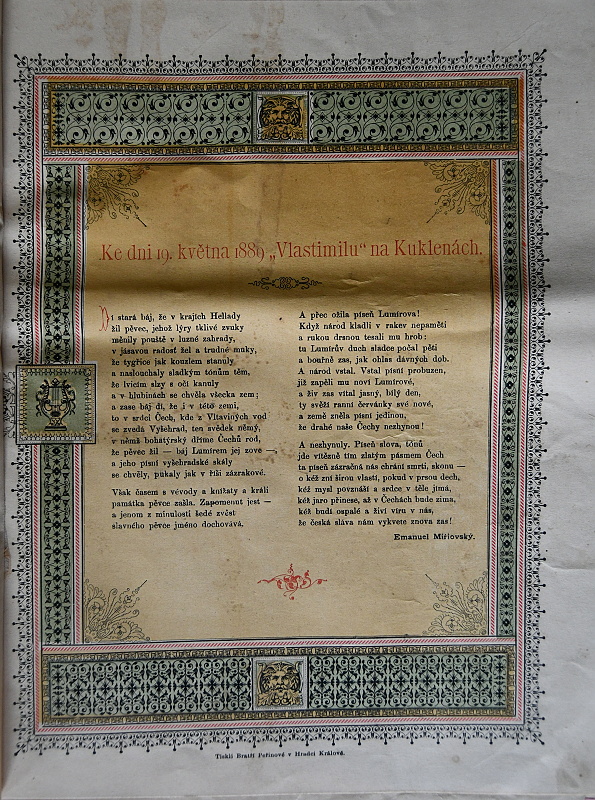 Ke dni 19. května 1889 „Vlastimilu“ na Kuklenách.
Dí stará báj, že v krajích Hellady
žil pěvec, jehož lýry tklivé zvuky
měnily pouště v luzné zahrady,
v jásavou radost žel a trudné muky,
že tygřice jak kouzlem stanuly
a naslouchaly sladkým tónům těm,
že lvicím slzy s očí kanuly
a v hlubinách se chvěla všecka zem;
a zase báj dí, že i v této zemi,
to v srdci Čech, kde z Vltaviných vod
se zvedá Vyšehrad, ten svědek němý,
v němž bohatýrský dříme Čechů rod,
že pěvec žil — báj Lumírem jej zove —,
a jeho písní vyšehradské skály
se chvěly, pukaly jak v říši zázrakové.
Však časem s vévody a knížaty a králi
památka pěvce zašla. Zapomenut jest —
a jenom z minulosti šedé zvěst
slavného pěvce jméno dochovává.
A přec ožila píseň Lumírova!
Když národ kladli v rakev nepaměti
a rukou drsnou tesali mu hrob:
tu Lumírův duch sladce počal pěti
a bouřně zas, jak ohlas dávných dob.
A národ vstal. Vstal písní probuzen,
již zapěli mu noví Lumírové,
a živ zas vítal jasný, bílý den,
ty svěží ranní červánky své nové,
a země zněla písní jedinou,
že drahé naše Čechy nezhynou!
A nezhynuly. Píseň slova, tónů
jde vítězně tím zlatým pásmem Čech
ta píseň zázračná nás chrání smrti, skonu —
o kéž zní širou vlastí, pokud v prsou dech,
kéž mysl povznáší a srdce v těle jímá,
kéž jaro přinese, až v Čechách bude zima,
kéž budí ospalé a živí víru v nás,
že česká sláva nám vykvete znova zas!
Emanuel Miřiovský.
Tiskli Bratři Peřinové v Hradci Králové.